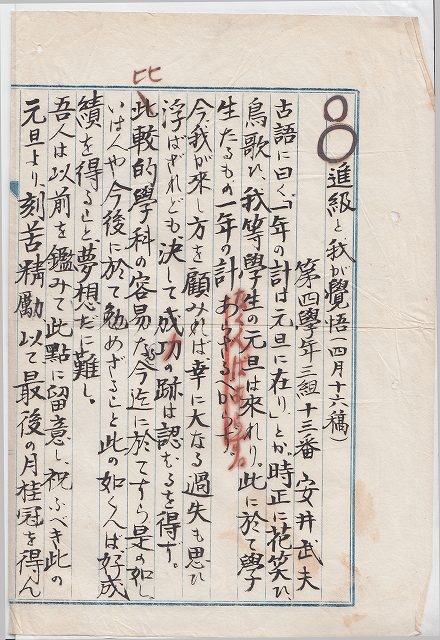 進級と我が覺悟(四月十六稿)
第四學年三組十三番 安井武夫
古語に曰く「一年の計は元旦に在り」とか、時正に花笑ひ、
鳥歌ひ、我等學生の元旦は來れり。此に於て學
生たるもの一年の計あらざるべからず。
今、我が來し方を顧みれば幸に大なる過失も思ひ
浮ばざれども、決して成功の跡は認むるを得ず。
比
此較的學科の容易なる今迄に於てすら是の如し
いはんや今後に於て勉めざること此の如くんば好成
績を得ること夢想だに難し。
吾人は以前を鑑みて此點に留意し、祝ふべき此の
元旦より、刻苦精勵以て最後の月桂冠を得ん